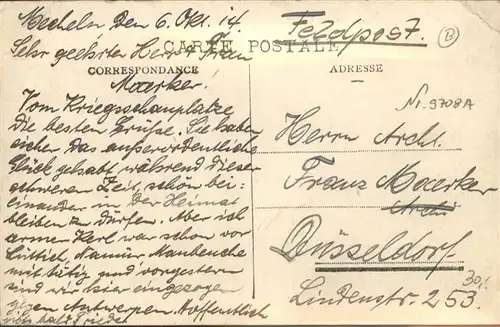 Mecheln, den 6. Okt. 14.
Feldpost.
B
Sehr geehrter Herr u. Frau
CARTE POSTALE
CORRESPONDANCE
ADRESSE
Maerker!
N. 9708A
Vom Kriegsschauplatze
die besten Grüße. Sie haben
sicher das außerordentliche
Glück gehabt, während dieser
schweren Zeit, schon bei-
einander in der Heimat
bleiben zu dürfen. Aber ich
armer Kerl war schon vor
Lüttich, Namur, Maubeuche
mit tätig und vorgestern
sind wir hier eingezogen
gegen Antwerpen. Hoffentlich
bald Friede
Herrn Archt.
Franz Maerker
Archi
Düsseldorf
Lindenstr. 253
30/.